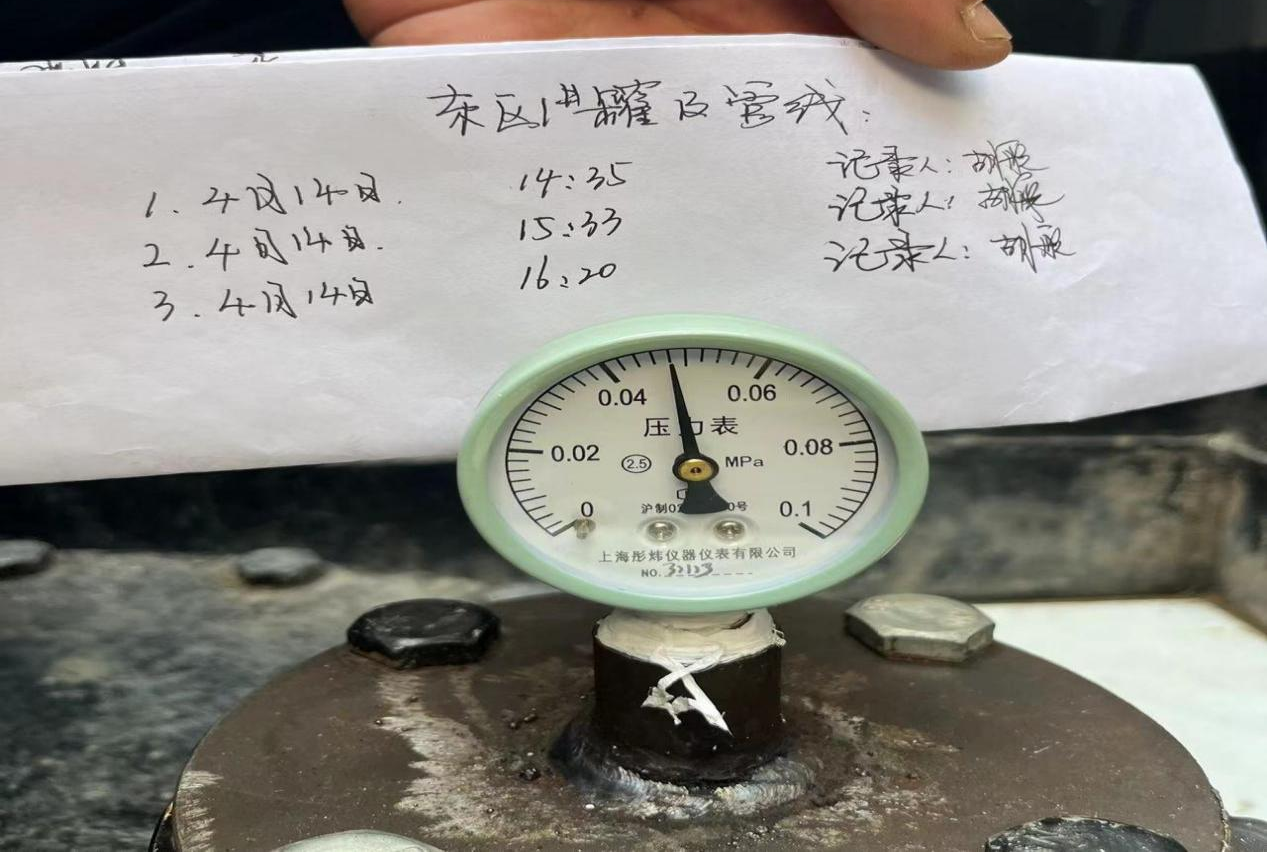 东区1#罐及管线:
1. 4月14日. 14:35 记录人:
2. 4月14日. 15:33 记录人:
3. 4月14日 16:20 记录人:
0.04 0.06
压力表
0.02 2.5 MPa 0.08
0 沪制02 0号 0.1
上海彤炜仪器仪表有限公司
NO.